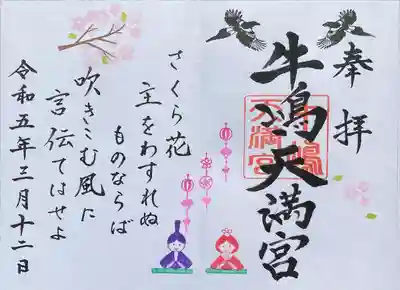 奉拝
牛嶋天満宮
牛嶋
天満宮
さくら花
主をわすれぬ
ものならば
吹きこむ風に
言伝てはせよ
令和五年三月十二日